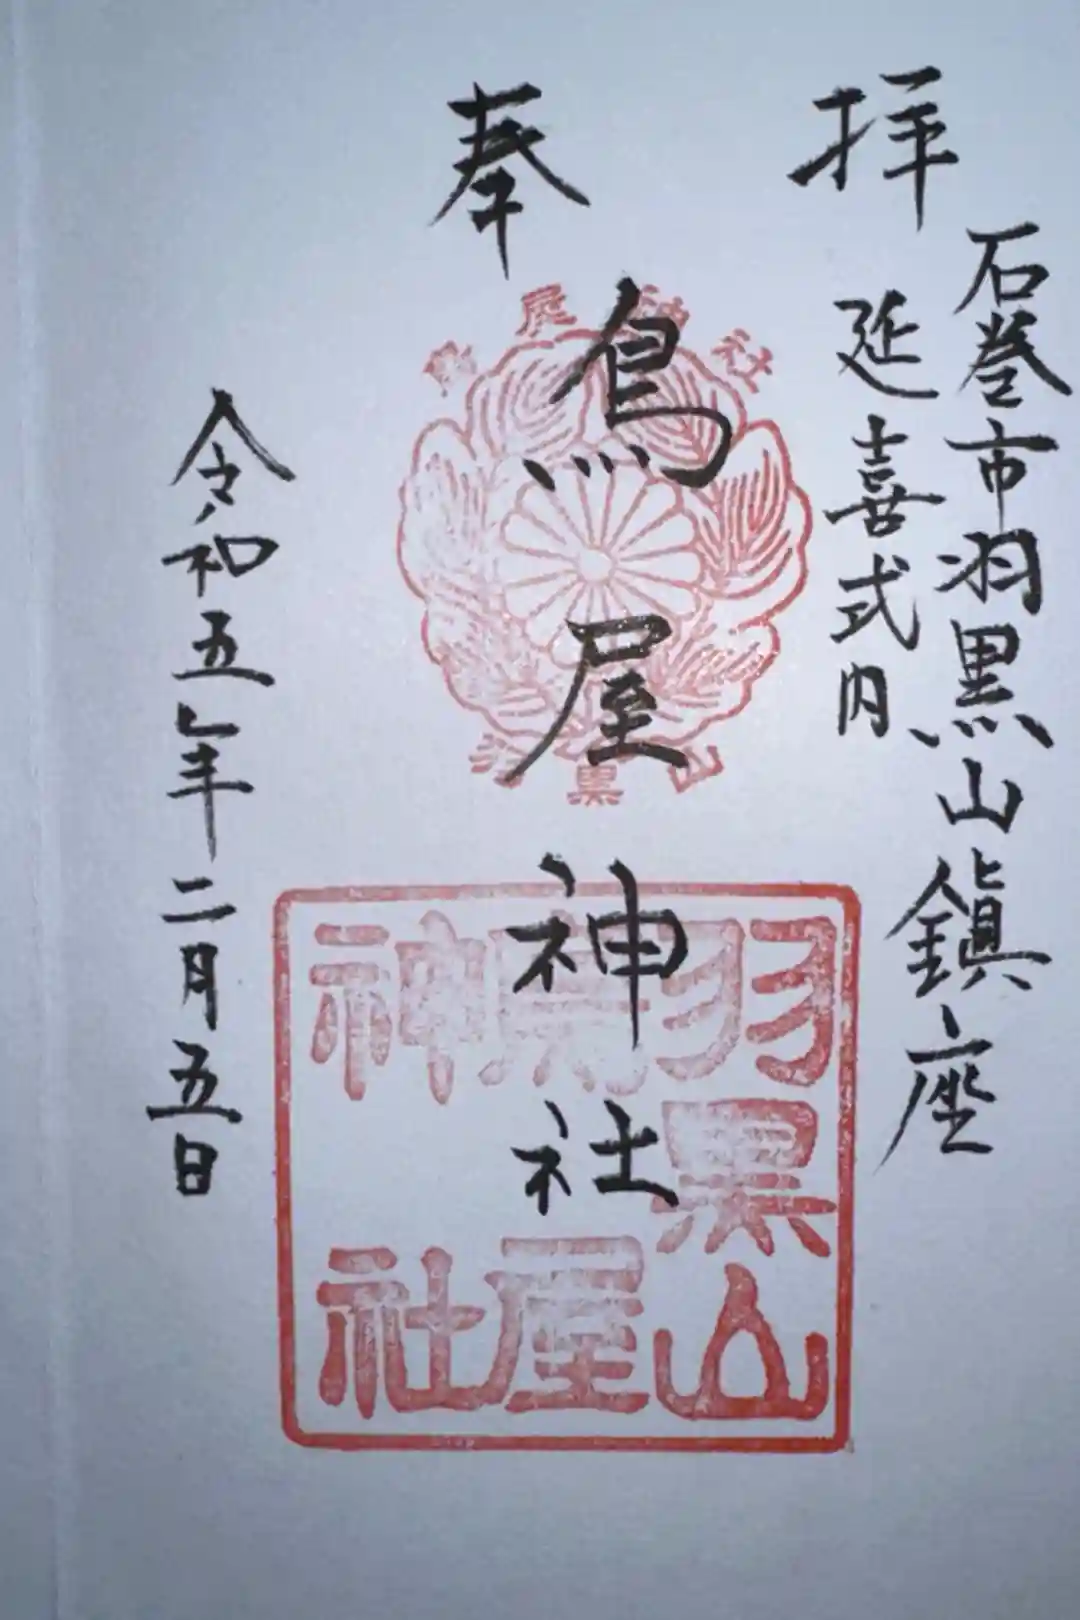 奉拝
石巻市羽黒山鎮座
延喜式内
鳥屋神社
令和五年二月五日
鳥屋神社
羽黒山
羽黒山
鳥屋
神社